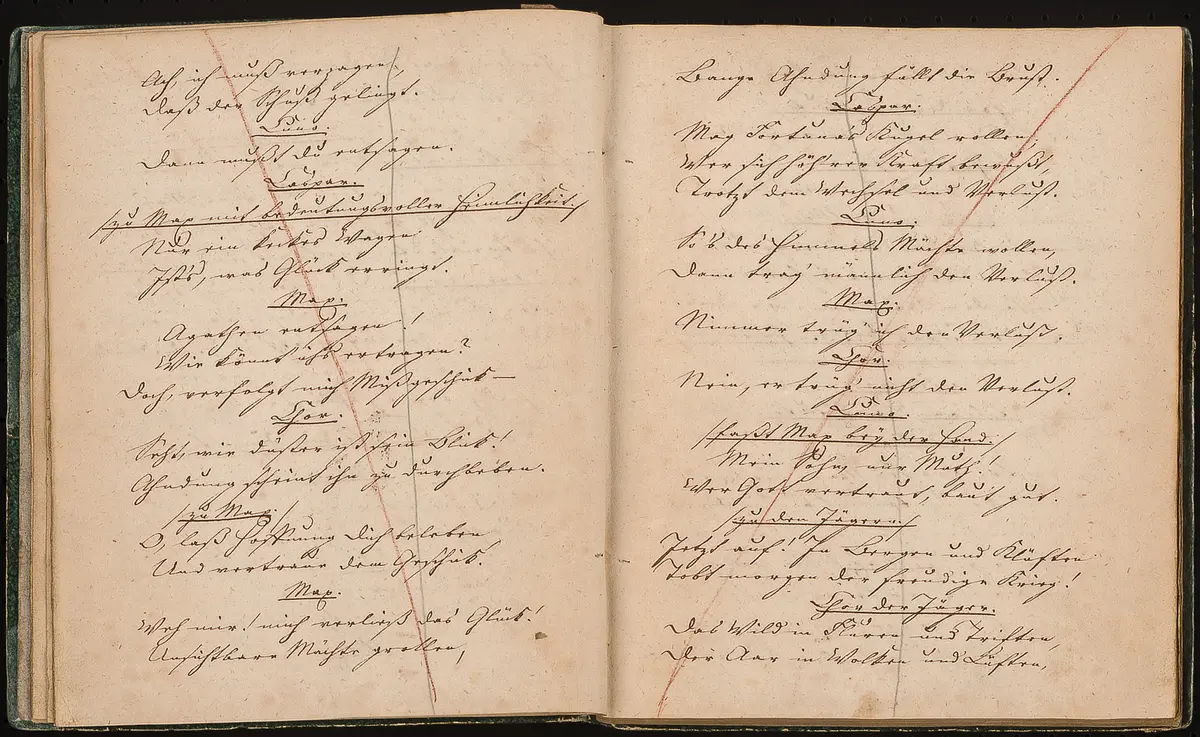 Ach, ich muß verzagen,
Daß der Schuß gelingt.
Cuno.
Dann mußt du entsagen.
Caspar.
/:zu Max mit bedeutungsvoller Heimlichkeit:/
Nur ein keckes Wagen
Ist's, was Glück erringt.
Max.
Agathen entsagen!
Wie könnt' ichs ertragen?
Doch, verfolgt mich Mißgeschick—
Chor.
Seht, wie düster ist sein Blick!
Ahndung scheint ihn zu durchbeben.
/:zu Max:/
O, laß Hoffnung dich beleben
Und vertraue dem Geschick.
Max.
Weh mir! mich verließ das Glück!
Unsichtbare Mächte grollen,
Bange Ahndung füllt die Brust.
Caspar.
Mag Fortuna's Kugel rollen,
Wer sich höh'rer Kraft bewußt,
Trotzt dem Wechsel und Verlust.
Cuno.
So's des Himmels Mächte wollen,
Dann trag' männlich den Verlust.
Max.
Nimmer trüg' ich den Verlust.
Chor.
Nein, er trüg' nicht den Verlust.
Cuno.
/:faßt Max bey der Hand:/
Mein Sohn, nur Muth!
Wer Gott vertraut, baut gut.
/:zu den Jägern:/
Jetzt auf! In Bergen und Klüften
Tobt morgen der freudige Krieg!
Chor der Jäger.
Das Wild in Fluren und Triften,
Der Aar in Wolken und Lüften,